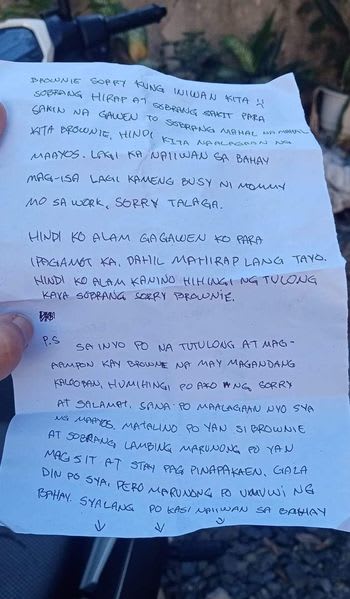 BROWNIE SORRY KUNG INIWAN KITA :(
SOBRANG HIRAP AT SOBRANG SAKIT PARA
SAKIN NA GAWEN TO SOBRANG MAHAL NA MAHAL
KITA BROWNIE, HINDI KITA NAALAGAAN NG
MAAYOS. LAGI KA NAIIWAN SA BAHAY
MAG-ISA LAGI KAMENG BUSY NI MOMMY
MO SA WORK, SORRY TALAGA.
HINDI KO ALAM GAGAWEN KO PARA
IPAGAMOT KA. DAHIL MAHIRAP LANG TAYO.
HINDI KO ALAM KANINO HIHINGI NG TULONG
KAYA SOBRANG SORRY BROWNIE.
P.S SA INYO PO NA TUTULONG AT MAG-
AAMPON KAY BROWNIE NA MAY MAGANDANG
KALOOBAN, HUMIHINGI PO AKO NG SORRY
AT SALAMAT, SANA PO MAALAGAAN NYO SYA
NG MAAYOS. MATALINO PO YAN SI BROWNIE
AT SOBRANG LAMBING MARUNONG PO YAN
MAG SIT AT STAY PAG PINAPAKAEN. GALA
DIN PO SYA, PERO MARUNONG PO UMUWI NG
BAHAY. SYALANG PO KASI NAIIWAN SA BAHAY